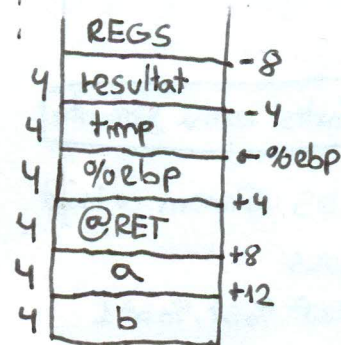 REGS
-8
4 resultat
-4
4 tmp
←%ebp
4 %ebp
+4
4 @RET
+8
4 a
+12
4 b